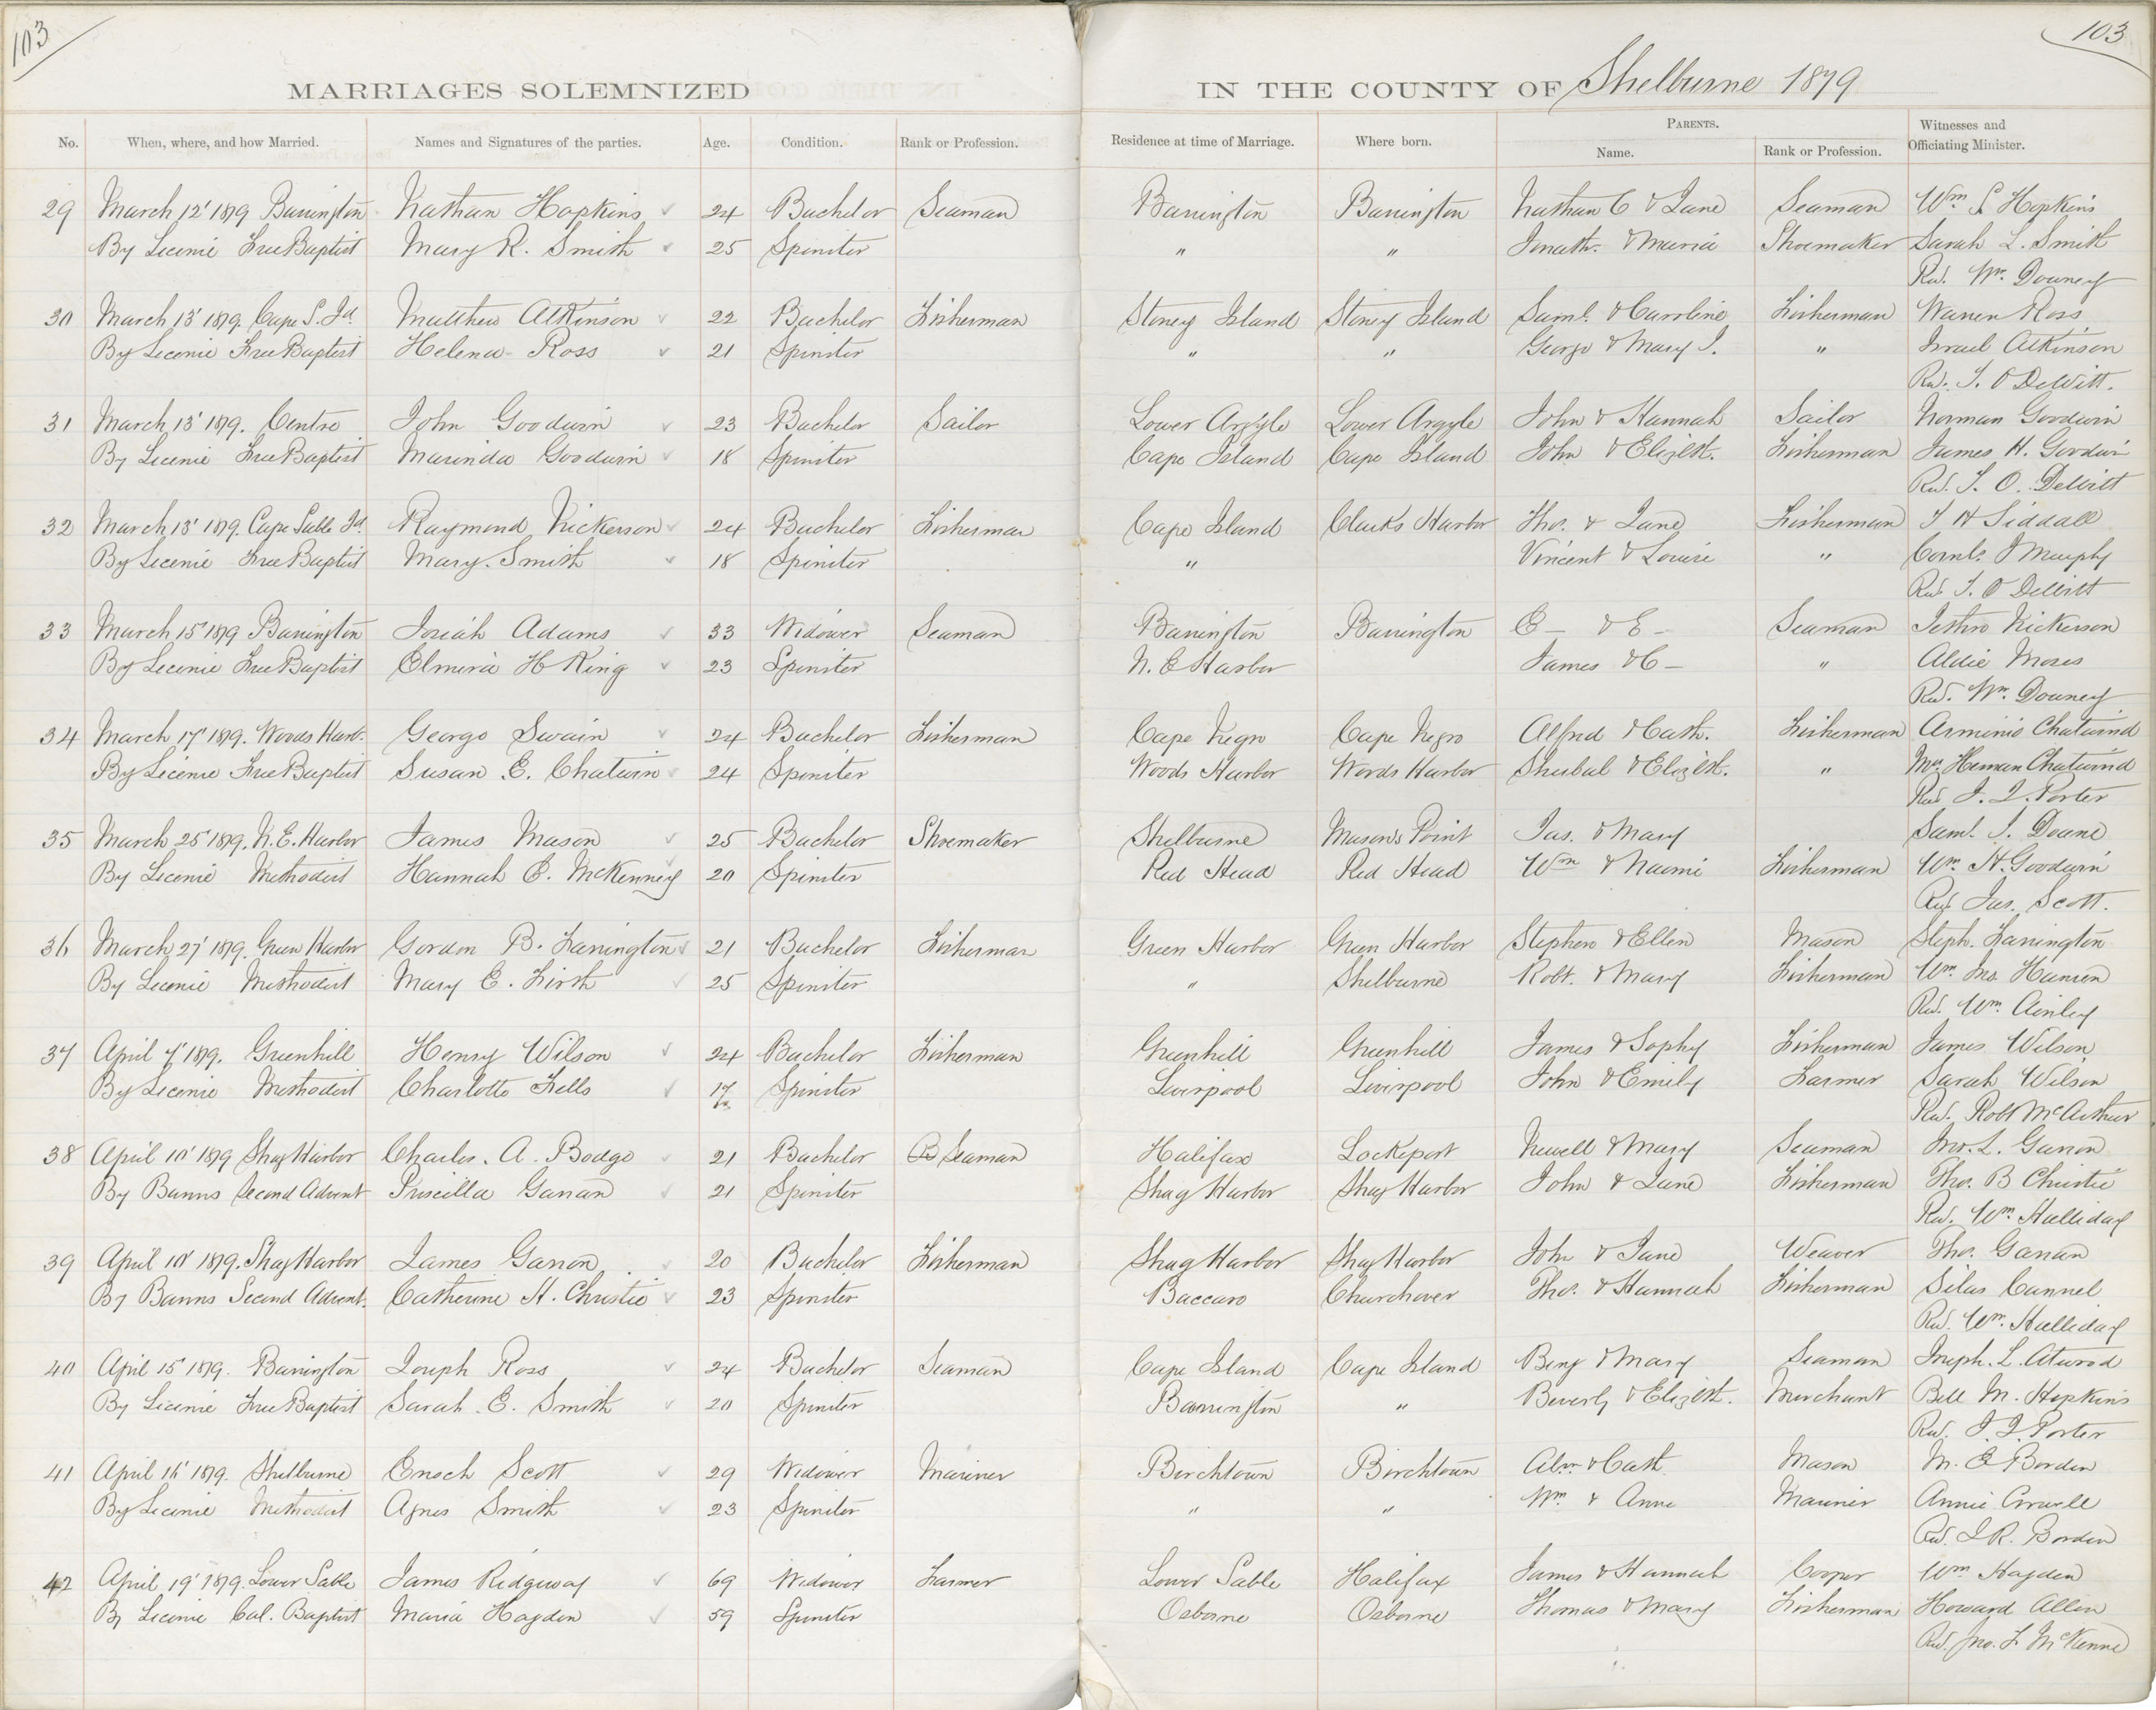 103
103
MARRIAGES SOLEMNIZED IN THE COUNTY OF Shelburne 1879
No. When, where, and how Married. Names and Signatures of the parties. Age. Condition. Rank or Profession. Residence at time of Marriage. Where born. PARENTS. Name. Rank or Profession. Witnesses and Officiating Minister.
29 March 12' 1879 Barrington Nathan Hopkins 24 Bachelor Seaman Barrington Barrington Nathan C & Jane Seaman Wm S. Hopkins
By Licence Free Baptist Mary R. Smith 25 Spinster " " Jonath. & Maria Shoemaker Sarah L. Smith
Rev. Wm. Downey
30 March 13' 1879. Cape S. Id. Matthew Atkinson 22 Bachelor Fisherman Stoney Island Stoney Island Saml. & Caroline Fisherman Warren Ross
By Licence Free Baptist Helena Ross 21 Spinster " " George & Mary J. " Israel Atkinson
Rev. T. O DeWitt.
31 March 13' 1879. Centre John Goodwin 23 Bachelor Sailor Lower Argyle Lower Argyle John & Hannah Sailor Norman Goodwin
By Licence Free Baptist Marinda Goodwin 18 Spinster Cape Island Cape Island John & Elizbth. Fisherman James H. Goodwin
Rev. T. O. DeWitt
32 March 13' 1879. Cape Sable Id. Raymond Nickerson 24 Bachelor Fisherman Cape Island Clarks Harbor Tho. & Jane Fisherman T H Siddall
By Licence Free Baptist Mary. Smith 18 Spinster " Vincent & Louise " Cornls. J Murphy
Rev. T. O DeWitt
33 March 15' 1879 Barrington Josiah Adams 33 Widower Seaman Barrington Barrington C— & E— Seaman Jethro Nickerson
By Licence Free Baptist Elmira H King 23 Spinster N. E Harbor James & C— " Aldie Moses
Rev. Wm. Downey
34 March 17' 1879. Woods Harb. George Swain 24 Bachelor Fisherman Cape Negro Cape Negro Alfred & Cath. Fisherman Arminio Chatwind
By Licence Free Baptist Susan E. Chatwin 24 Spinster Woods Harbor Woods Harbor Shubal & Elizbth. " Mrs Heman Chatwind
Rev. J. I. Porter
35 March 25' 1879. N. E. Harbor James Mason 25 Bachelor Shoemaker Shelburne Mason's Point Jas. & Mary Saml. J. Doane
By Licence Methodist Hannah E. McKenney 20 Spinster Red Head Red Head Wm & Naomi Fisherman Wm. H. Goodwin
Rev. Jas. Scott.
36 March 27' 1879. Green Harbor Gordon B. Farrington 21 Bachelor Fisherman Green Harbor Green Harbor Stephen & Ellen Mason Steph. Farrington
By Licence Methodist Mary E. Firth 25 Spinster " Shelburne Robt. & Mary Fisherman Wm. Jno. Hanson
Rev. Wm. Ainley
37 April 7' 1879. Greenhill Henry Wilson 24 Bachelor Fisherman Greenhill Greenhill James & Sophy Fisherman James Wilson
By Licence Methodist Charlotte Fells 17 Spinster Liverpool Liverpool John & Emily Farmer Sarah Wilson
Rev. Robt McArthur
38 April 10' 1879 Shag Harbor Charles. A. Bodge 21 Bachelor Seaman Halifax Lockeport Newell & Mary Seaman Jno. L. Garron
By Banns Second Advent Priscilla Garran 21 Spinster Shag Harbor Shag Harbor John & Jane Fisherman Tho. B Christie
Rev. Wm. Halliday
39 April 10' 1879. Shag Harbor James Garron 20 Bachelor Fisherman Shag Harbor Shag Harbor John & Jane Weaver Tho. Garran
By Banns Second Advent. Catherine H. Christie 23 Spinster Baccaro Churchover Tho. & Hannah Fisherman Silas Cannel
Rev. Wm. Halliday
40 April 15' 1879. Barrington Joseph Ross 24 Bachelor Seaman Cape Island Cape Island Benj & Mary Seaman Joseph. L. Atwood
By Licence Free Baptist Sarah E. Smith 20 Spinster Barrington " Beverly & Elizbth. Merchant Bell M. Hopkins
Rev. J. I. Porter
41 April 16' 1879. Shelburne Enoch Scott 29 Widower Mariner Birchtown Birchtown & Cath. Mason M. E Borden
By Licence Methodist Agnes Smith 23 Spinster " " Wm. & Anne Mariner Annie Crowell
Rev. J. R. Borden
42 April 19' 1879. Lower Sable James Ridgeway 69 Widower Farmer Lower Sable Halifax James & Hannah Cooper Wm Hagden
By Licence Cal. Baptist Maria Hagden 59 Spinster Osborne Osborne Thomas & Mary Fisherman Howard Allen
Rev. Jno. F. McKenne